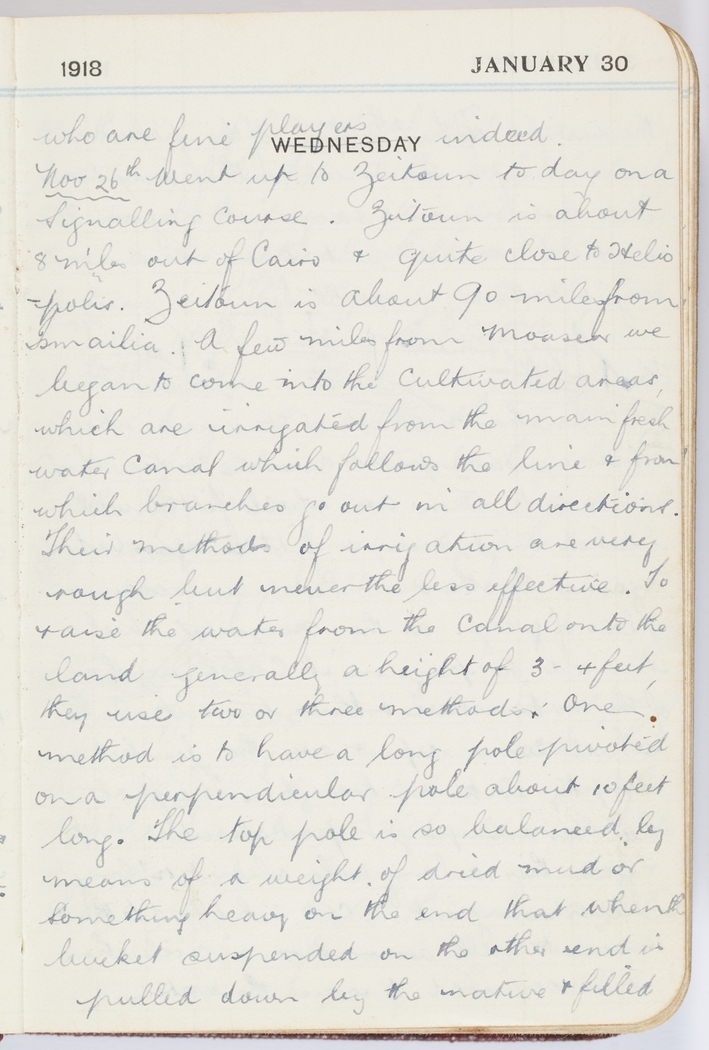 1918 JANUARY 30
WEDNESDAY
who are fine players indeed.
Nov 26th Went up to Zeitoun to day on a
Signalling Course. Zeitoun is about
8 miles out of Cairo & quite close to Helio
-polis. Zeitoun is about 90 miles from
Ismailia. A few miles from Moascar we
began to come into the cultivated areas,
which are irrigated from the main fresh
water Canal which follows the line & from
which branches go out in all directions.
Their methods of irrigation are very
rough but never the less effective. To
raise the water from the Canal onto the
land generally a height of 3 - 4 feet,
they use two or three methods. One
method is to have a long pole pivoted
on a perpendicular pole about 10 feet
long. The top pole is so balanced by
means of a weight of dried mud or
something heavy on the end that when the
bucket suspended on the other end is
pulled down by the native & filled